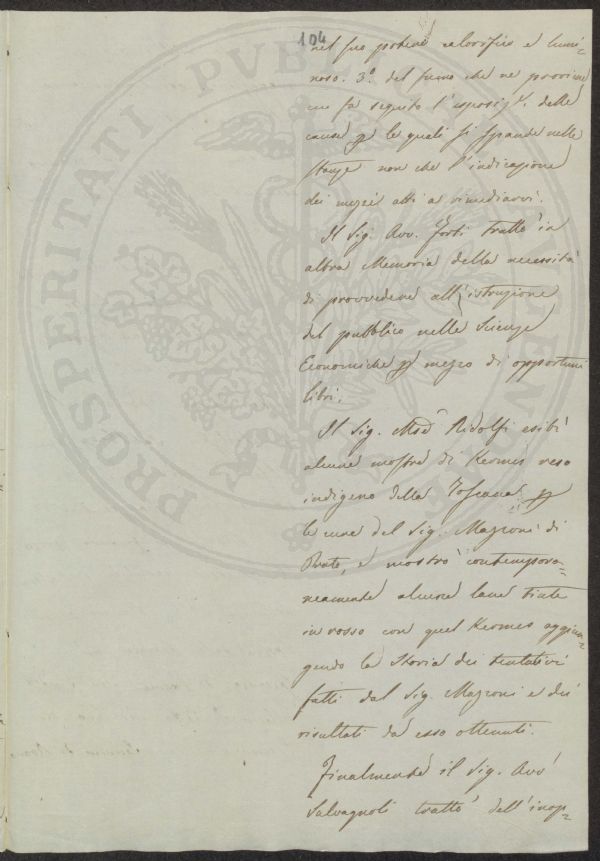 104
nel suo potere calorifico e lumi-
noso. 3.º del fumo che ne proviene
cui fa seguito l'esposiz.e delle
cause p le quali si spande nelle
stanze non che l'indicazione
dei mezzi atti a rimediarvi.
Il Sig. Avv. Forti trattò in
altra Memoria della necessità
di provvedere all'istruzione
del pubblico nelle Scienze
Economiche p mezzo di opportuni
libri.
Il Sig. Mse Ridolfi esibì
alcune mostre di Kermes reso
indigeno della Toscana p
le cure del Sig. Mazzoni di
Prato, e mostrò contempora=
neamente alcune lane tinte
in rosso con quel Kermes aggiun=
gendo la Storia dei tentativi
fatti dal Sig. Mazzoni e dei
risultati da esso ottenuti.
Finalmente il Sig. Avv
Salvagnoli trattò dell'inop=
PROSPERITATI PUBLICAE AUGENDAE